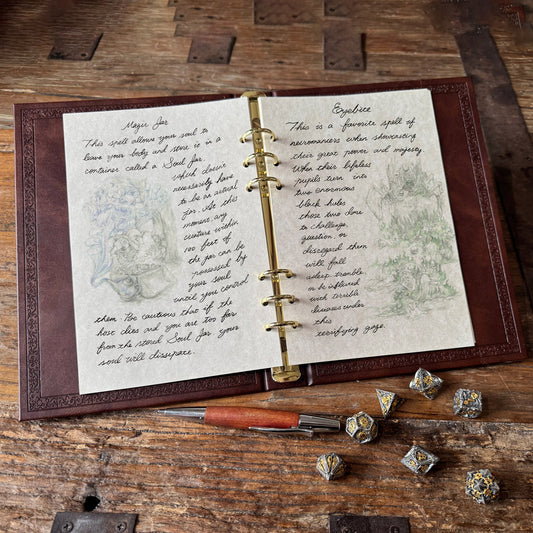 Magic Jar
This spell allows your soul to
leave your body and store it in a
container called a Soul Jar.
which doesn't
necessarily have
to be an actual
jar. At this
moment, any
creature within
100 feet of
the jar can be
possessed by
your soul
until you control
them. Be cautious that if the
host dies and you are too far
from the stored Soul Jar your
soul will dissipate.
Eyebite
This is a favorite spell of
necromancers when showcasting
their great power and majesty.
When their lifeless
pupils turn into
two enormous
black holes
those two dare
to challenge,
question, or
disregard them
will fall
asleep, tremble
or be inflicted
with terrible
diseases under
this
terrifying gaze.